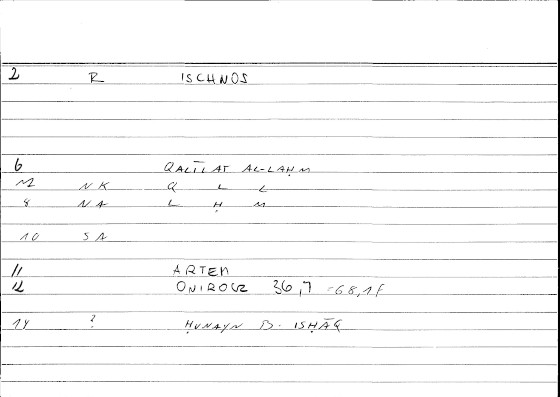 2 R ISCHNOS
6 QALĪLAT AL-LAḤM
M NK Q L L
8 NA L Ḥ M
10 SN
11 ARTEM
12 ONIROCR 36,7 = 68,1f
14 ? ḤUNAYN B. ISḤĀQ